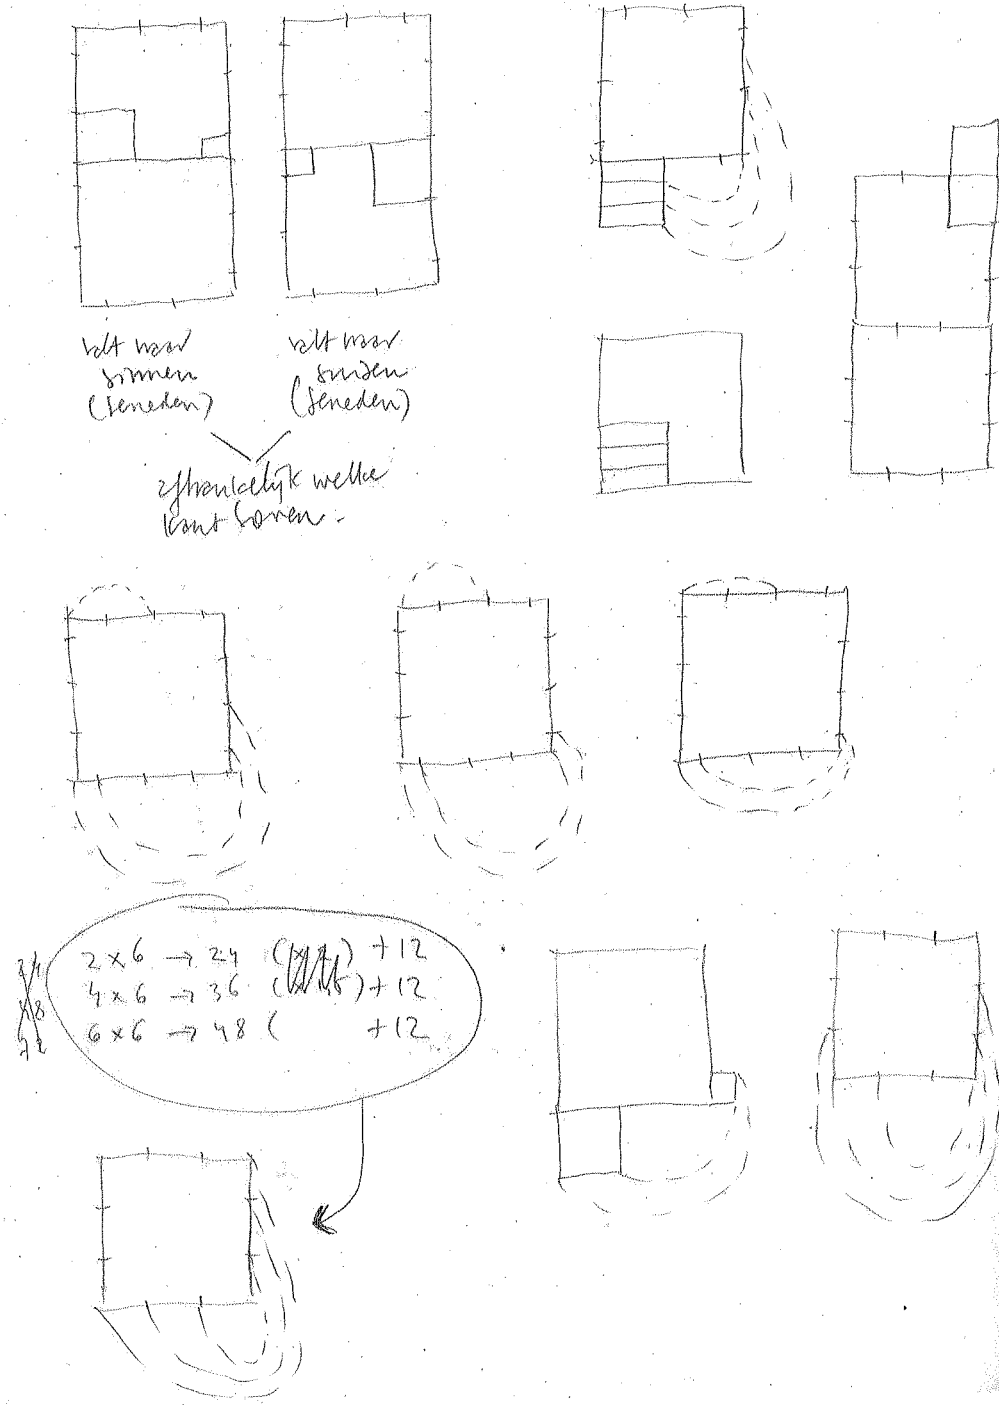 valt naar
binnen
(beneden)
valt naar
buiten
(beneden)
afhankelijk welke
kant boven.
2 x 6 → 24 ( ) + 12
4 x 6 → 36 ( ) + 12
6 x 6 → 48 ( + 12